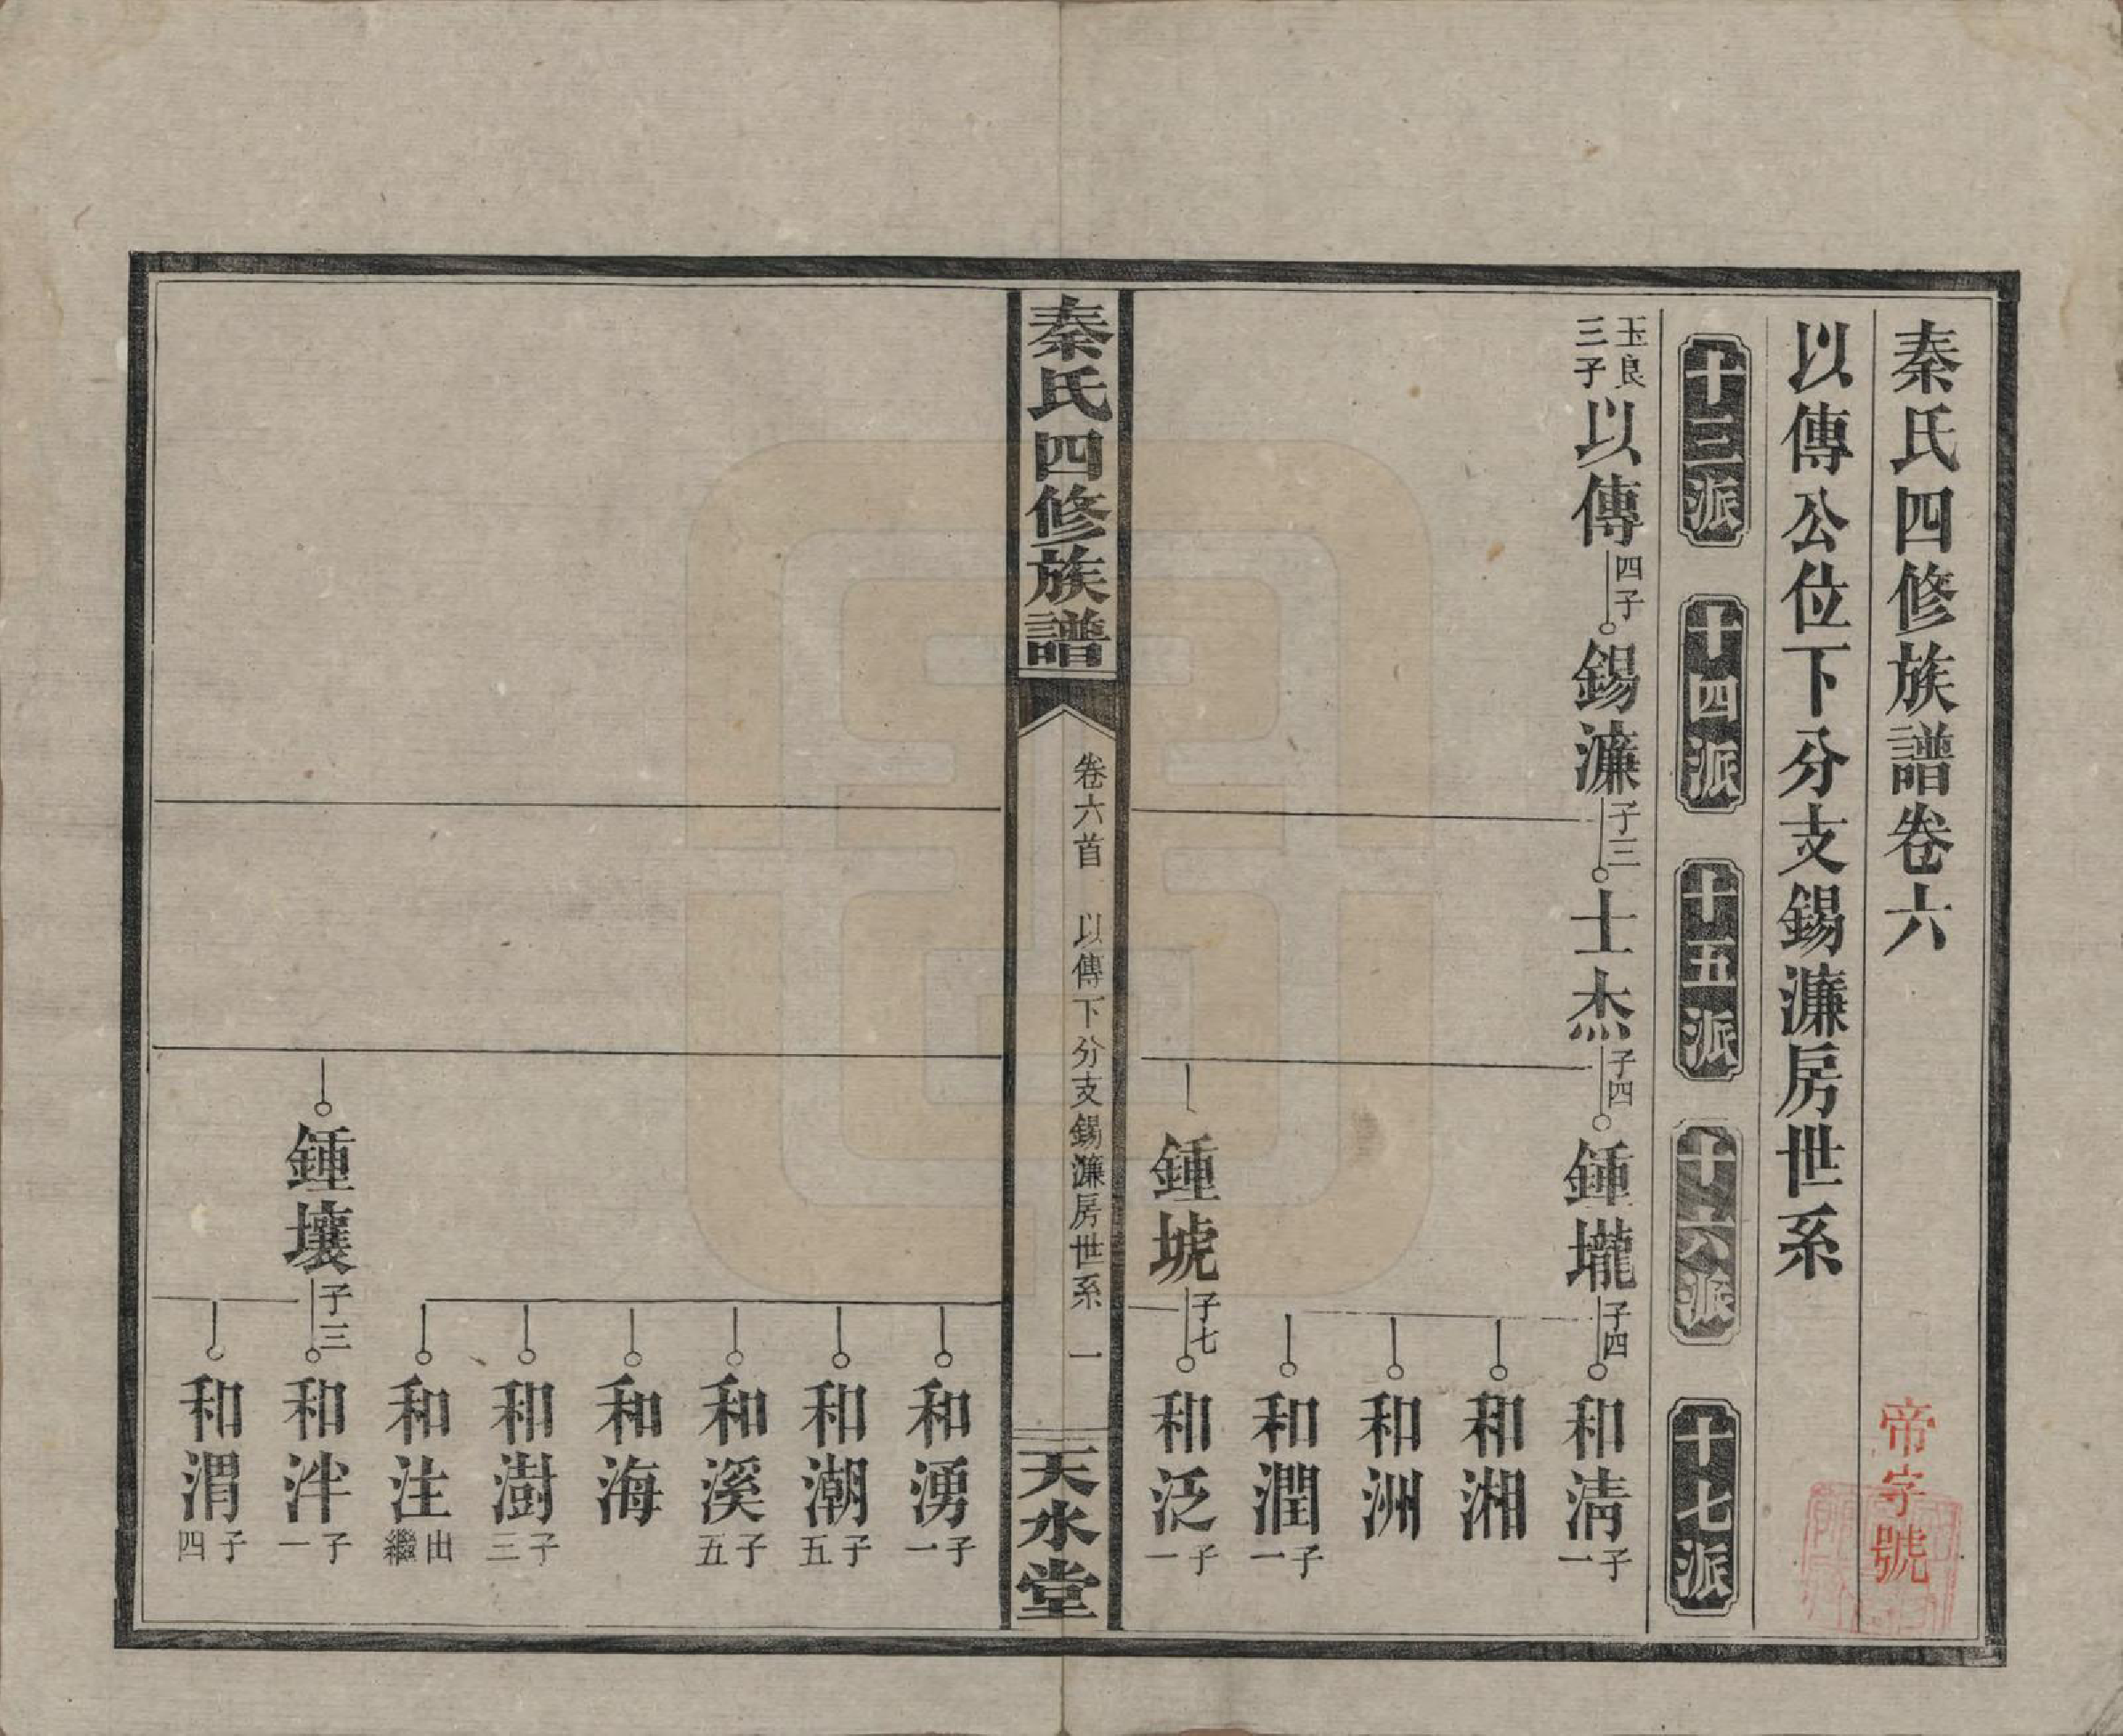 秦氏四修族譜卷六
帝字號
以傳公位下分支錫濂房世系
十三派
十四派
十五派
十六派
十七派
玉良三子
以傳
四子
錫濂
子三
士杰
子四
鍾壠
子四
和清
子一
和湘
和洲
和潤
子一
鍾墟
子七
和泛
子一
秦氏四修族譜
卷六首
以傳下分支錫濂房世系
一
天水堂
和湧
子一
和潮
子五
和溪
子五
和海
和澍
子三
和注
出繼
鍾壤
子三
和泮
子一
和渭
子四